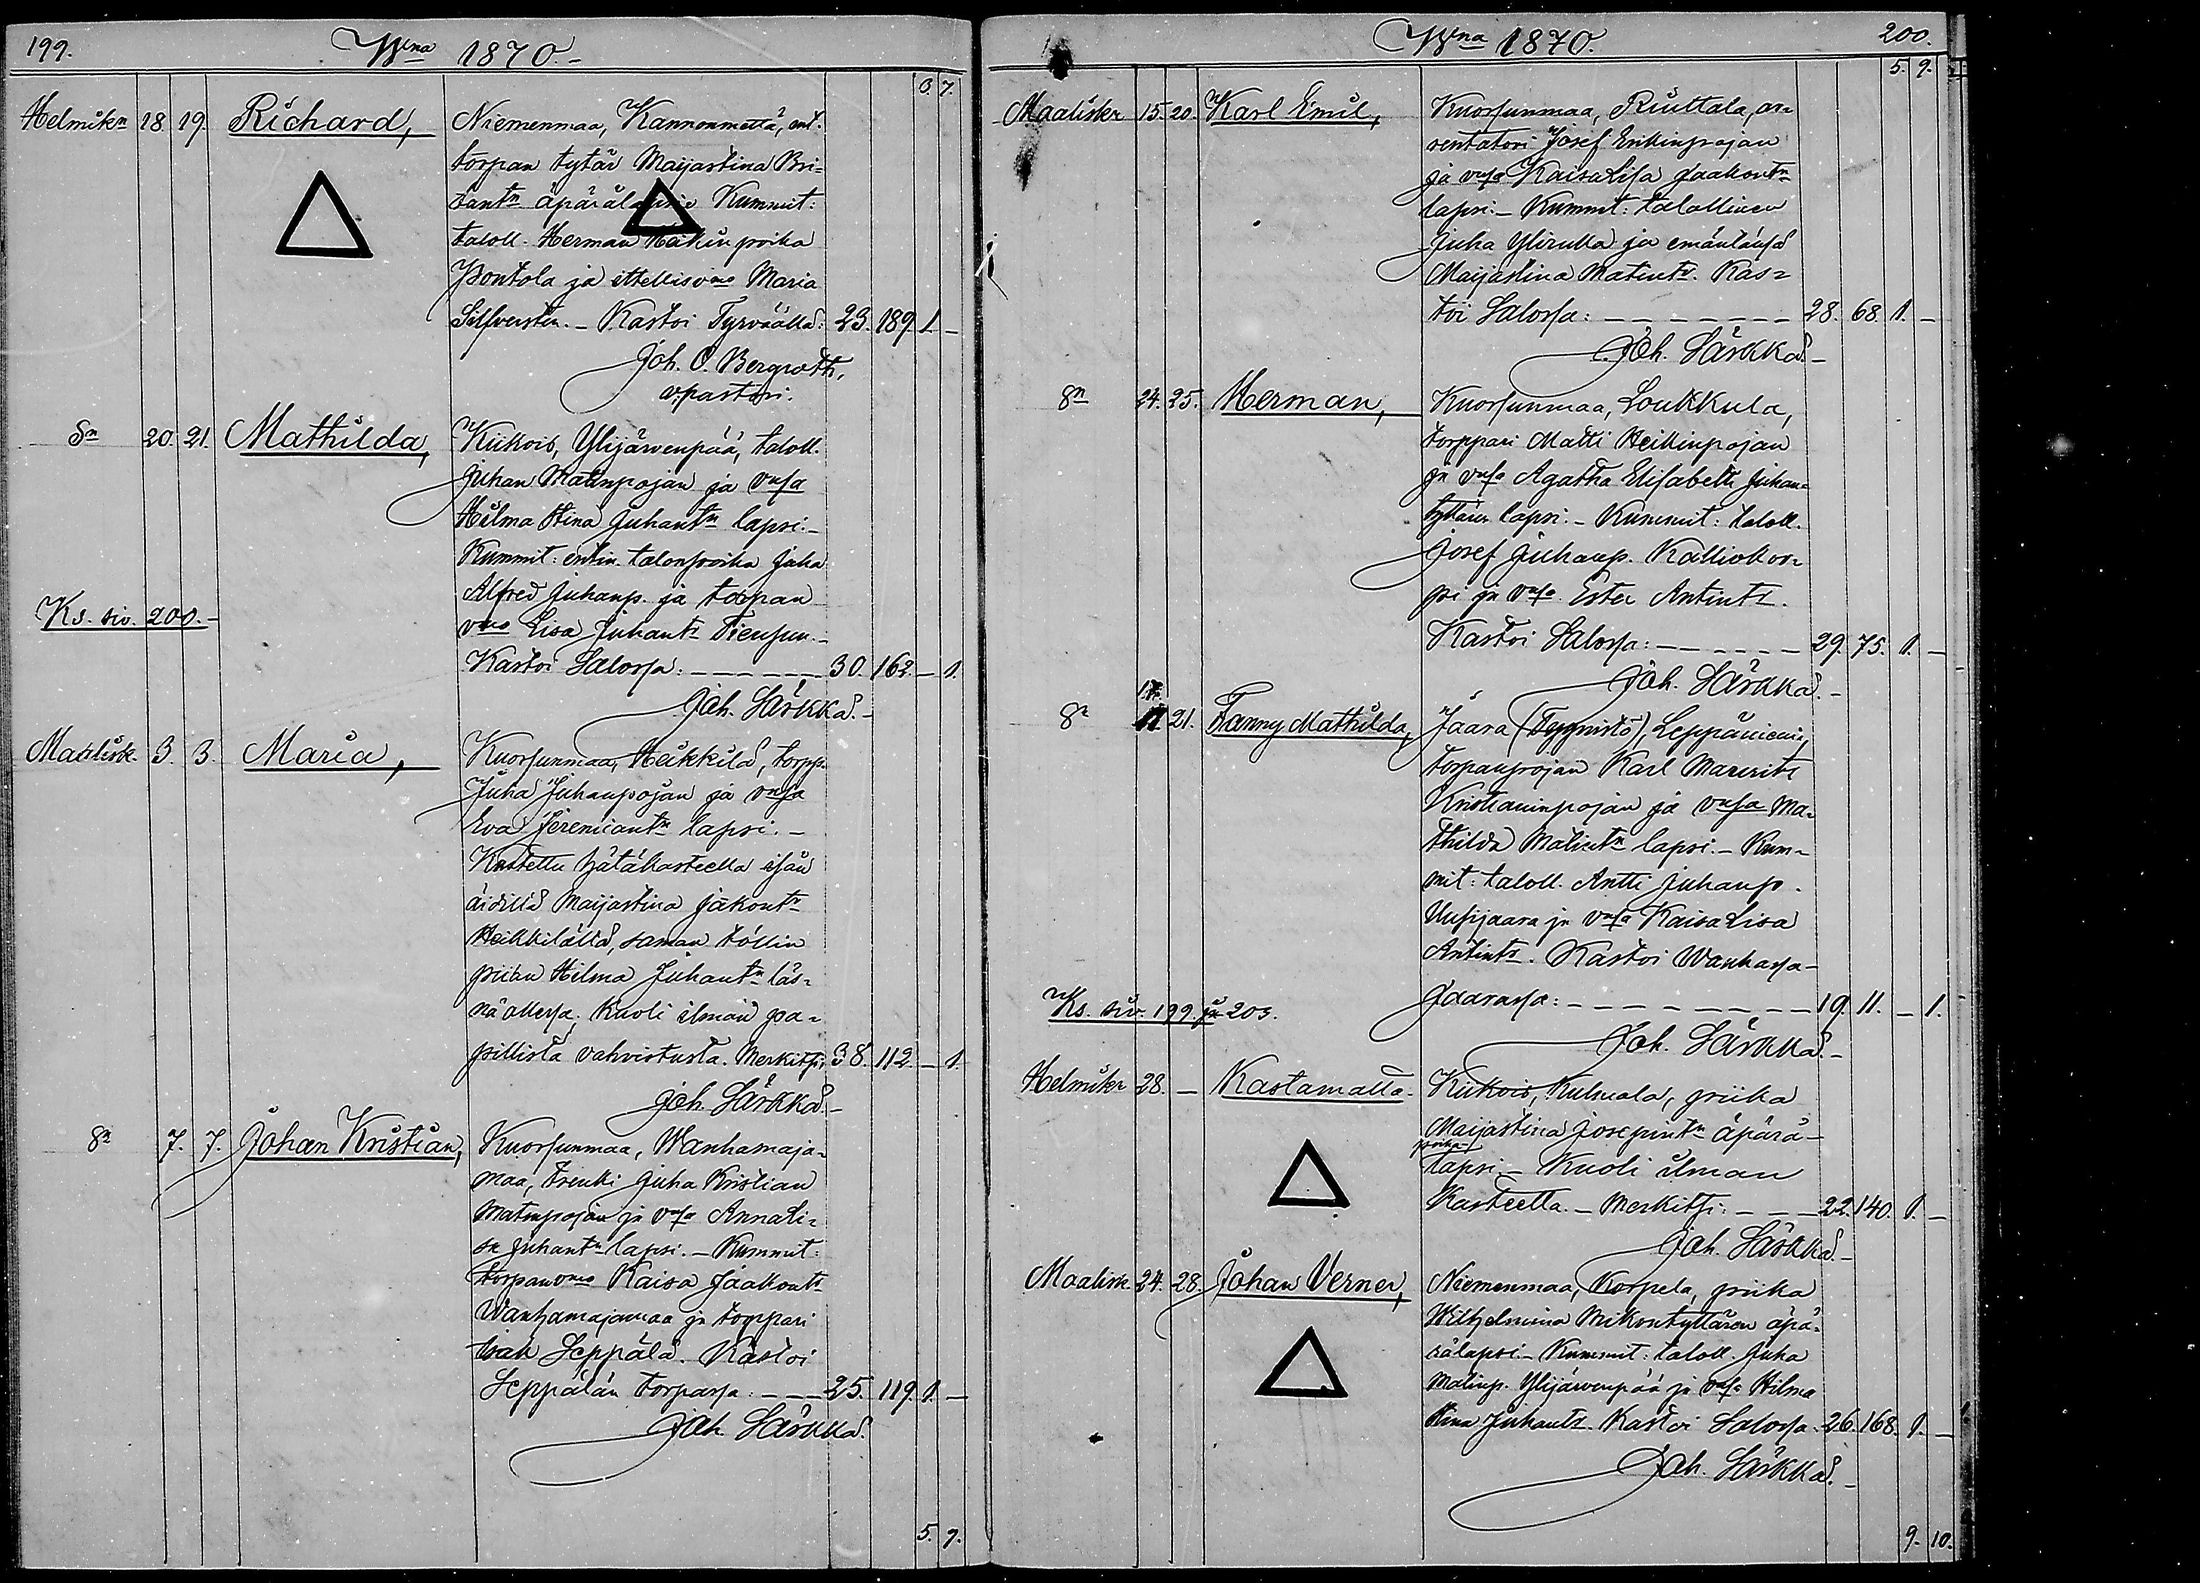 199.
Wna 1870.-
3. 7.
Helmikn 18. 19. Richard, Niemenmaa, Kannonmatta, ent.
torpan tytär Maijastina Bri-
tantn äpärälapsi Kummit:
taloll. Herman Heikin poika
Pontola ja ittellisvmo Maria
Silfversten. - Kastoi Tyrväällä: 23. 189. 1. -
Joh. O. Bergroth,
v. pastori.
Sn 20. 21. Mathilda, Kiikois, Ylijärvenpää, taloll.
Juhan Matinpojan ja vnsa
Hilma Stina Juhantn lapsi. -
Kummit: entin. talonpoika Juha
Alfred Juhanp. ja torpan
vmo Lisa Juhantr
Ks. siv. 200. -
Kastoi Salossa: - - - - - - 30. 162. - 1.
Joh. Särkkä. -
Maalisk. 3. 3. Maria, Kuorsunmaa, Heikkilä, torpp.
Juha Juhanpojan ja vnsa
Eva Jeremiantn lapsi. -
Kastettu hätäkasteella isän
äidillä Maijastina Jakontr
Heikkilältä, saman töllin
piian Hilma Juhantn läs-
nä ollessa. Kuoli ilman pa-
pillista vahvistusta. Merkitsi; 38. 112. - 1.
Joh. Särkkä. -
Sn 7. 7. Johan Kristian, Kuorsunmaa, Wanhamaja-
maa, trenki Juha Kristian
Matinpojan ja vnsa Annali-
sa Juhantn lapsi. - Kummit:
torpanvmo Kaisa Jaakontr
Wanhamajamaa ja torppari
Isak Seppälä. Kastoi
Seppälän torpassa: - - - 25. 119. 1. -
Joh. Särkkä.
5. 9.
Wna 1870.
200.
5. 9.
Maalisku 15. 20. Karl Emil, Kuorsunmaa, Riuttala, ar-
rentatori Josef Erikinpojan
ja vnsa KaisaLisa Jaakontn
lapsi. - Kummit: talollinen
Juha Ylirulla ja emäntänsä
Maijastina Matintr. Kas-
toi Salossa: - - - - - - - 28. 68. 1. -
Joh. Särkkä. -
Sn 24. 25. Herman, Kuorsunmaa, Loukkula,
torppari Matti Heikinpojan
ja vnsa Agatha Elisabeth Juhan-
tyttären lapsi. - Kummit: taloll.
Josef Juhanp. Kalliokor-
pi ja vnsa Ester Antintr.
Kastoi Salossa: - - - - - 29. 75. 1. -
Joh. Särkkä. -
17.
Sn 21. Fanny Mathilda, Jaara (Tyynistö), Leppäniemi,
torpanpojan Karl Mauritz
Kristianinpojan ja vnsa Ma-
thilda Matintn lapsi. - Kum-
mit: taloll. Antti Juhanp.
Uusijaara ja vnsa KaisaLisa
Antintr. Kastoi Wanhassa-
Jaarassa: - - - - - - - - 19. 11. - 1.
Ks. siv. 199. ja 203.
Joh. Särkkä. -
Helmiku 28. - Kastamatta. Kiikois, Kulmala, piika
Maijastina Josepintn äpärä-
poika-
lapsi - Kuoli ilman
Kasteetta. - Merkitsi: - - - 22. 140. 1. -
Joh. Särkkä. -
Maalisk. 24. 28. Johan Verner, Niemenmaa, Korpela, piika
Wilhelmiina Mikontyttären äpä-
rälapsi - Kummit: taloll. Juha
Matinp. Ylijärvenpää ja vnsa Hilma
Stina Juhantr. Kastoi Salossa. 26. 168. 1. -
Joh. Särkkä. -
9. 10.